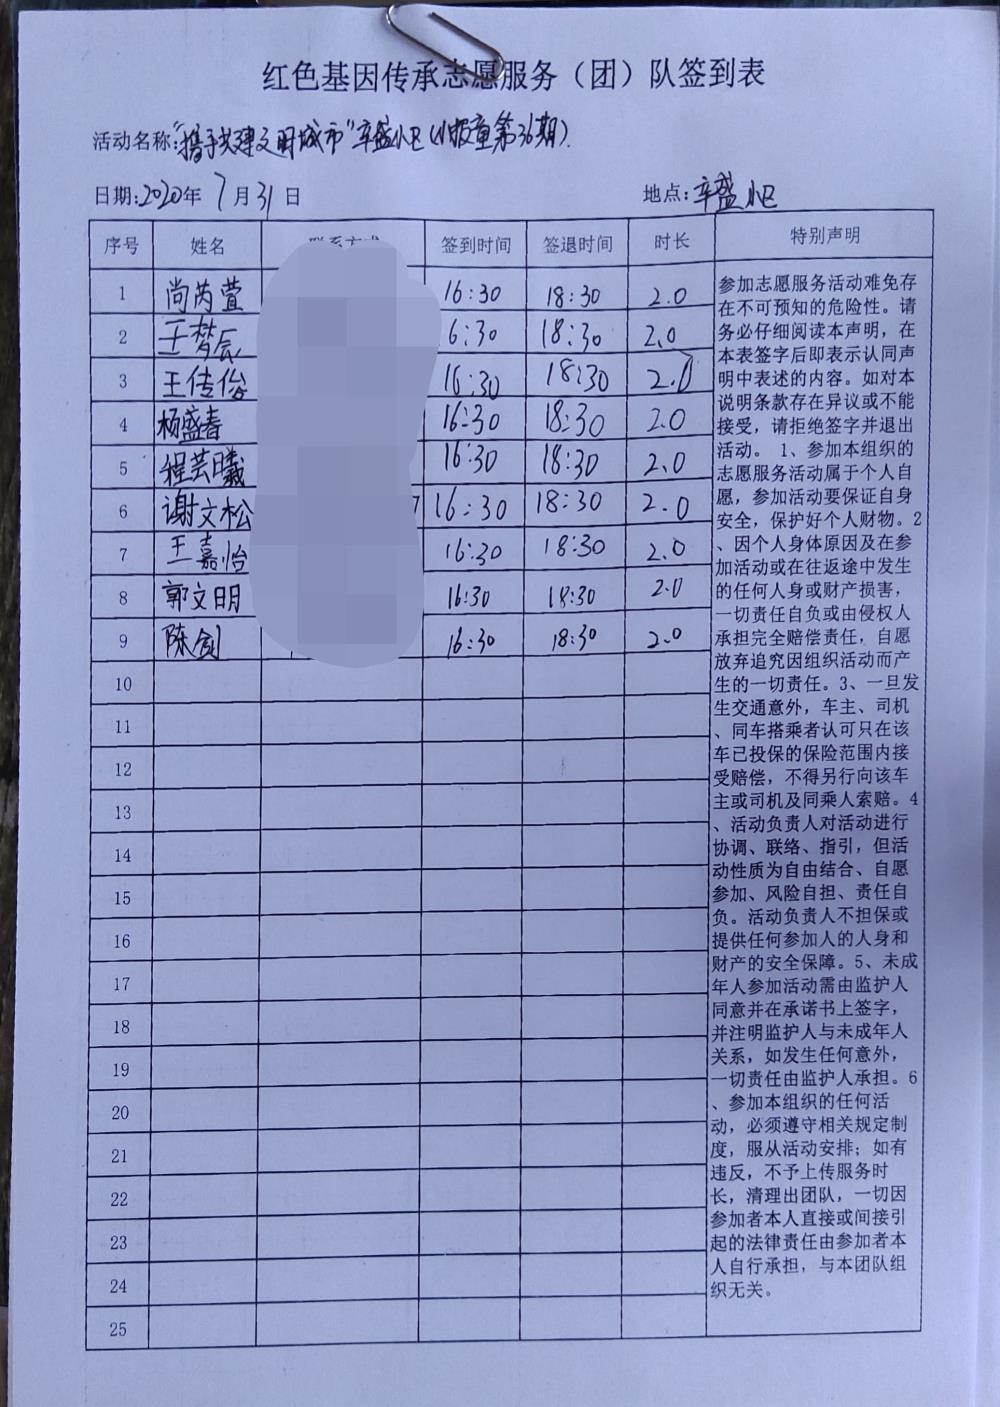 红色基因传承志愿服务（团）队签到表
活动名称:"携手共建文明城市"辛盛小区(小报童第36期)
日期:2020年 7月31日 地点:辛盛小区
序号 姓名 签到时间 签退时间 时长 特别声明
1 尚芮萱 16:30 18:30 2.0
2 王梦辰 6:30 18:30 2.0
3 王传俊 16:30 18:30 2.0
4 杨盛春 16:30 18:30 2.0
5 程芸曦 16:30 18:30 2.0
6 谢文松 7 16:30 18:30 2.0
7 王嘉怡 16:30 18:30 2.0
8 郭文明 16:30 18:30 2.0
9 陈剑 16:30 18:30 2.0
10
11
12
13
14
15
16
17
18
19
20
21
22
23
24
25
参加志愿服务活动难免存
在不可预知的危险性。请
务必仔细阅读本声明，在
本表签字后即表示认同声
明中表述的内容。如对本
说明条款存在异议或不能
接受，请拒绝签字并退出
活动。 1、参加本组织的
志愿服务活动属于个人自
愿，参加活动要保证自身
安全，保护好个人财物。2
、因个人身体原因及在参
加活动或在往返途中发生
的任何人身或财产损害，
一切责任自负或由侵权人
承担完全赔偿责任，自愿
放弃追究因组织活动而产
生的一切责任。3、一旦发
生交通意外，车主、司机
、同车搭乘者认可只在该
车已投保的保险范围内接
受赔偿，不得另行向该车
主或司机及同乘人索赔。4
、活动负责人对活动进行
协调、联络、指引，但活
动性质为自由结合、自愿
参加、风险自担、责任自
负。活动负责人不担保或
提供任何参加人的人身和
财产的安全保障。5、未成
年人参加活动需由监护人
同意并在承诺书上签字，
并注明监护人与未成年人
关系，如发生任何意外，
一切责任由监护人承担。6
、参加本组织的任何活
动，必须遵守相关规定制
度，服从活动安排；如有
违反，不予上传服务时
长，清理出团队，一切因
参加者本人直接或间接引
起的法律责任由参加者本
人自行承担，与本团队组
织无关。